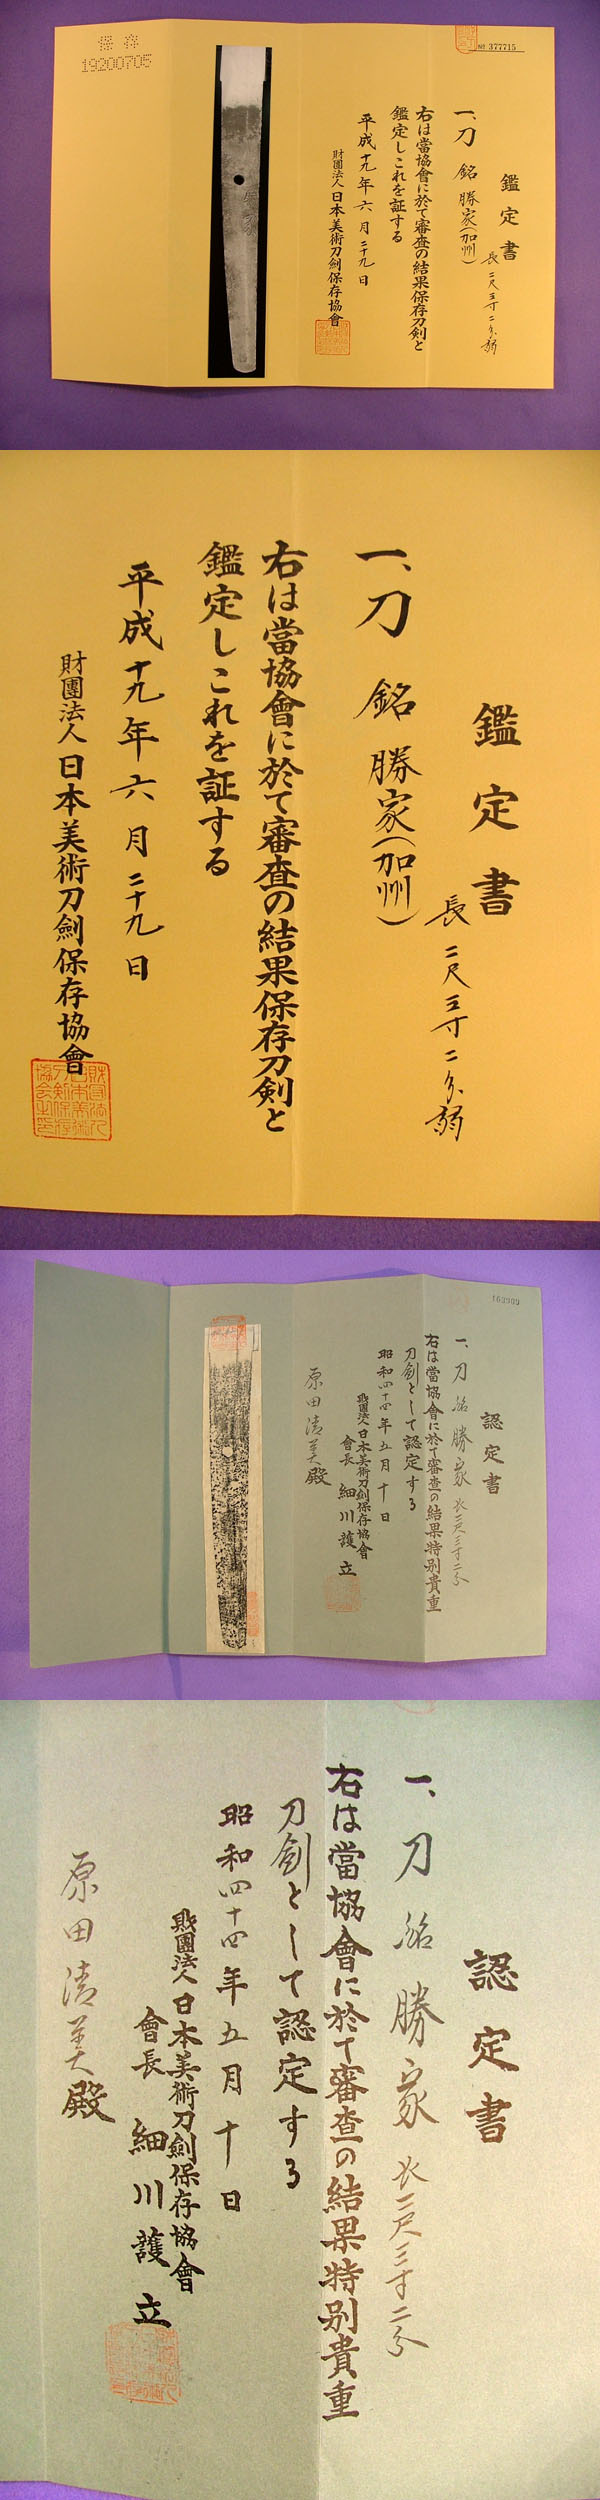 保存
19200705
No 377715
鑑定書
一、刀 銘 勝家(加州) 長二尺三寸二分弱
右は當協會に於て審査の結果保存刀剣と
鑑定しこれを証する
平成十九年六月二十九日
財團法人日本美術刀劍保存協會
勝家
鑑定書
一、刀 銘 勝家(加州)
長二尺三寸二分弱
右は當協會に於て審査の結果保存刀剣と
鑑定しこれを証する
平成十九年六月二十九日
財團法人日本美術刀劍保存協會
認定書
一、刀 銘 勝家 长二尺三寸二分
右は當協會に於て審査の結果特別貴重
刀劍として認定する
昭和四十四年五月十日
財團法人日本美術刀劍保存協會
會長 細川護立
原田清美殿
認定書
一、刀 銘 勝家 长二尺三寸二分
右は當協會に於て審査の結果特別貴重
刀劍として認定する
昭和四十四年五月十日
財團法人日本美術刀劍保存協會
會長 細川護立
原田清美殿